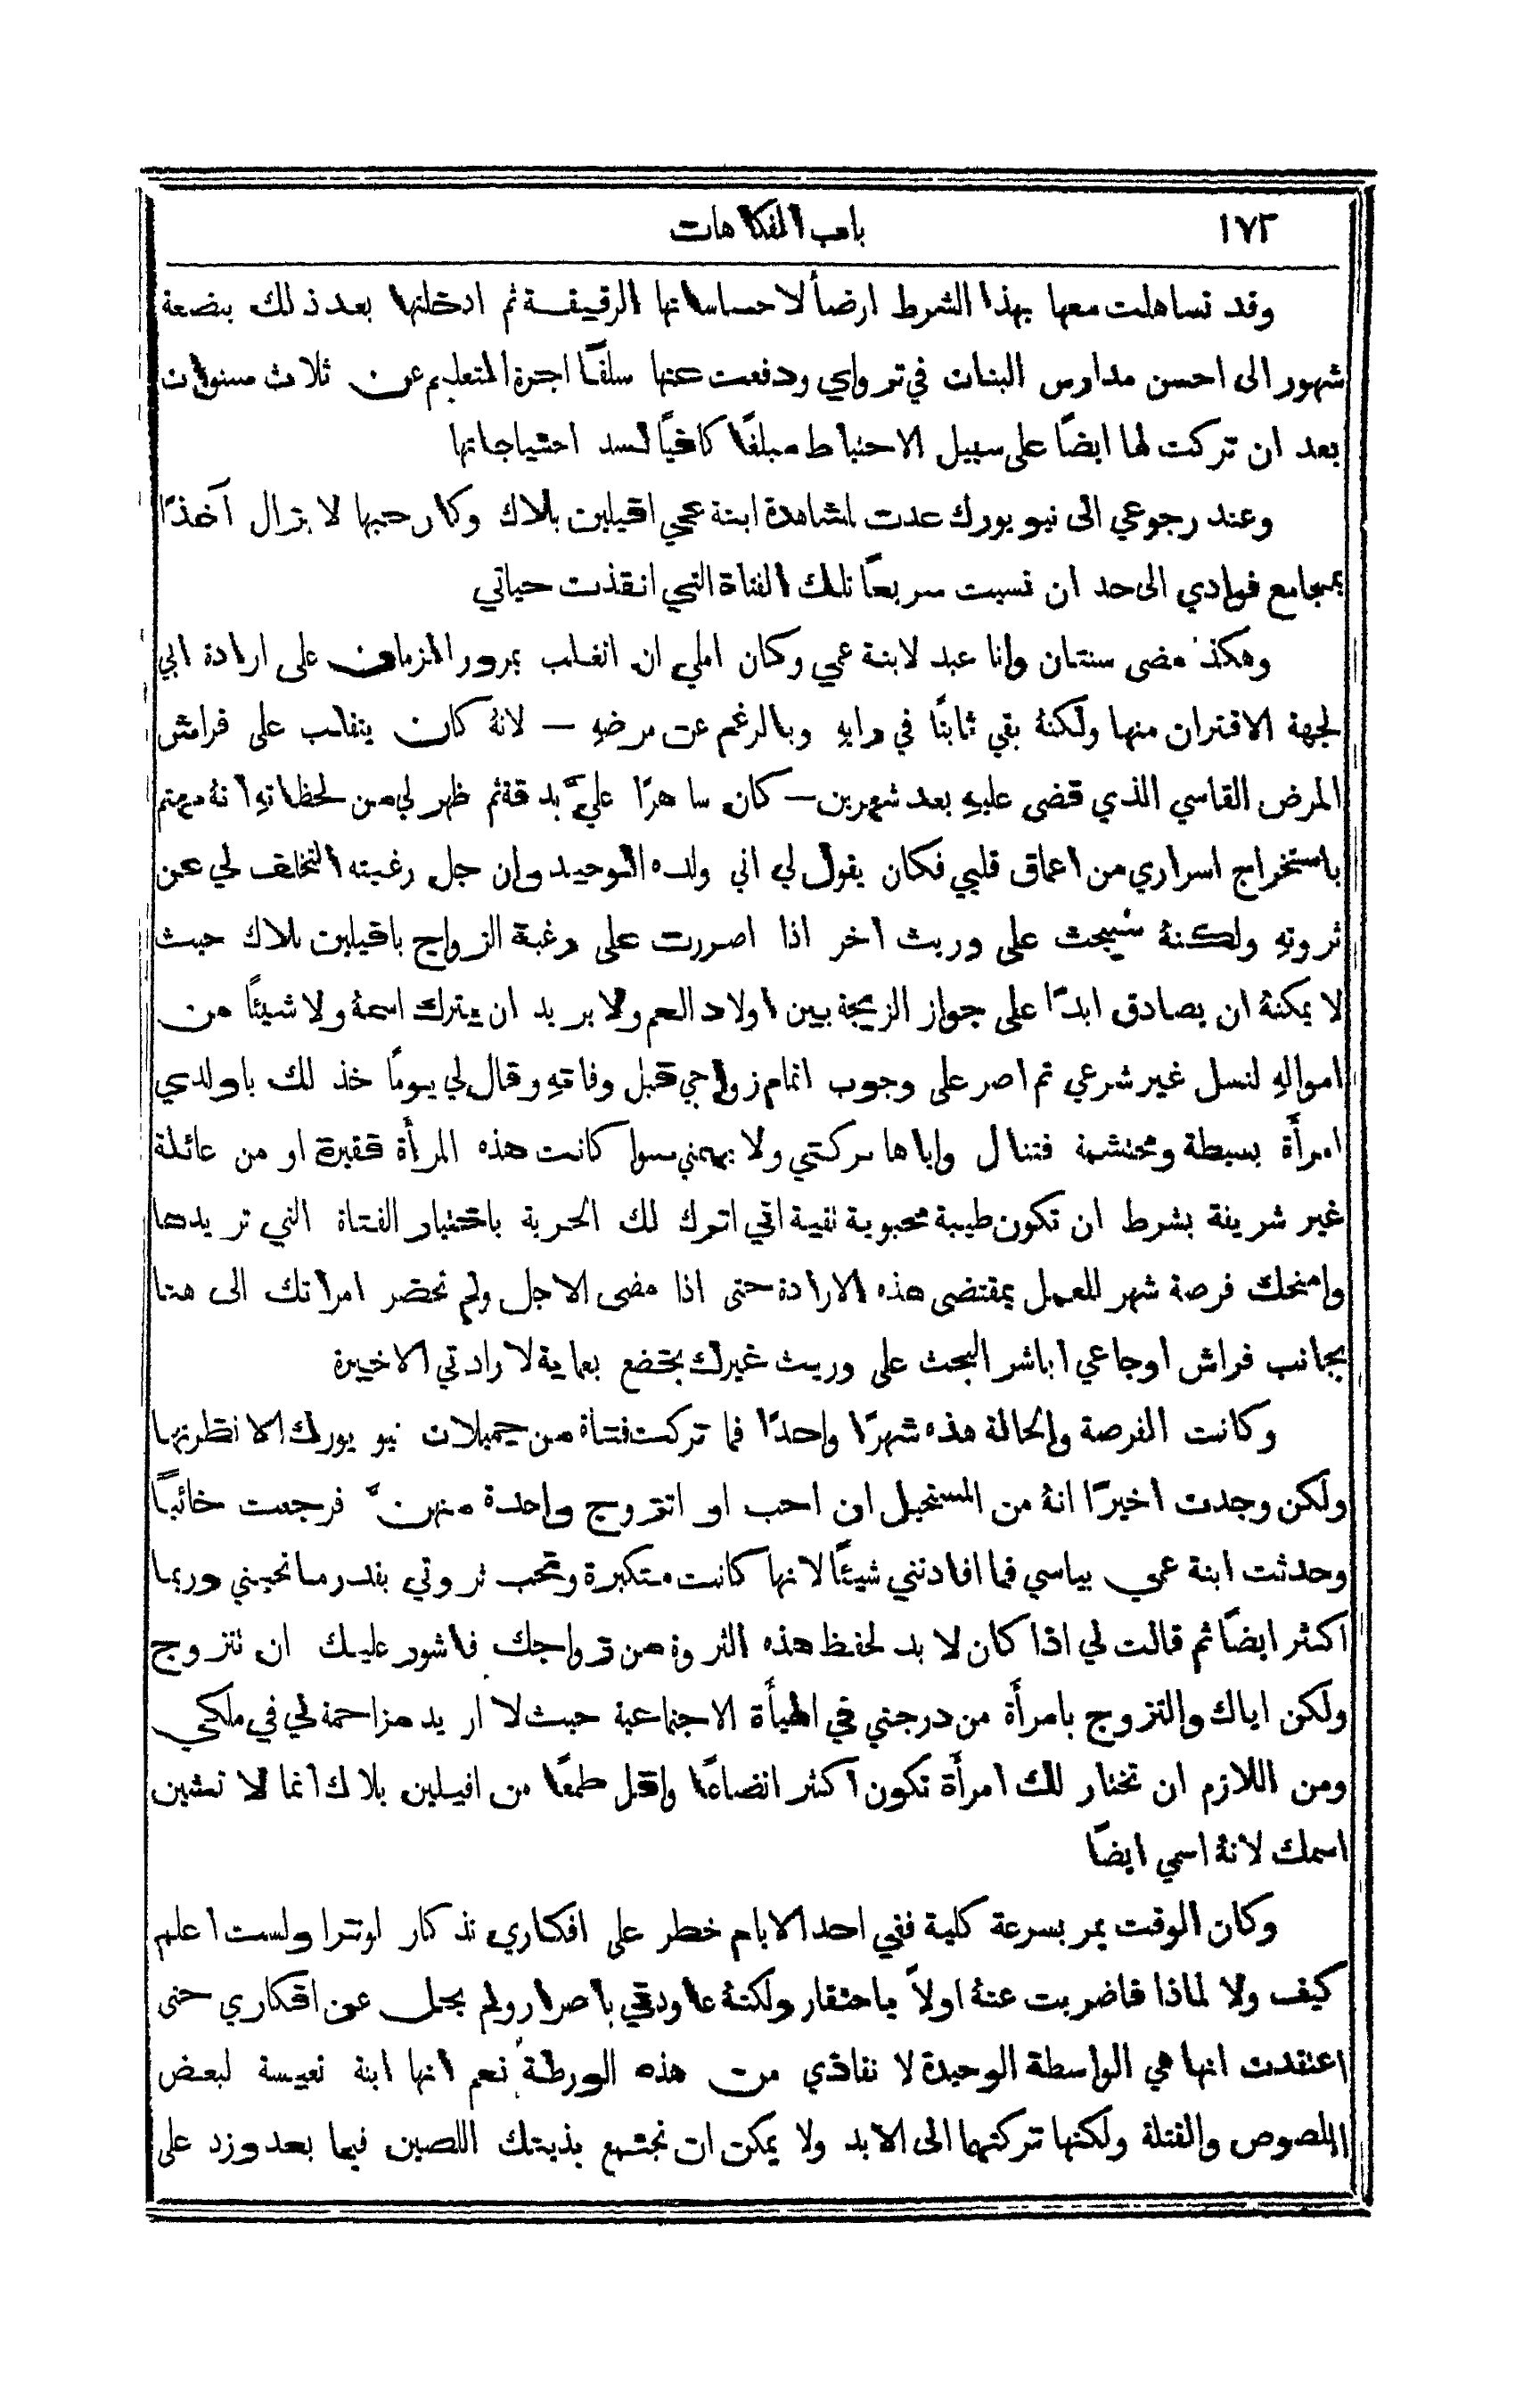 ١٧٢ باب الفكاهات
وقد تساهلت معها بهذا الشرط ارضأ لاحساساتها الرقيقة ثم ادخلتها بعد ذلك ببضعة
شهور الى احسن مدارس البنات في تر واي ودفعت عنها سلفًا اجرة التعليم عن ثلاث سنوات
بعد ان تركت لها ايضًا على سبيل الاحتياط مبلغًا كافيًا لسد احتياجاتها
وعند رجوعي الى نيو يورك عدت لمشاهدة ابنة عمي افيلين بلاك وكان حبها لا يزال آخذًا
بمجامع فوادي الى حد ان نسيت سريعًا تلك الفتاة التي انقذت حياتي
وهكذا مضى سنتان وانا عبد لابنة عمي وكان املي ان اتغلب بمرور الزمان على ارادة ابي
لجهة الاقتران منها ولكنهُ بقي ثابتًا في رايهِ وبالرغم عن مرضهِ – لانهُ كان يتقلب على فراش
المرض القاسي الذي قضى عليهِ بعد شهرين – كان ساهرًا عليَّ بدقة ثم ظهر لي من لحظاتهِ انهُ مهتم
باستخراج اسراري من اعماق قلبي فكان يقول لي اني ولده الوحيد وان جل رغبته التخلف لي عن
ثروتهِ ولكنهُ سيبحث على وريث اخر اذا اصررت على رغبة الزواج بافيلين بلاك حيث
لا يمكنهُ ان يصادق ابدًا على جواز الزيجة بين اولاد العم ولا يريد ان يترك اسمهُ ولا شيئًا من
اموالهِ لنسل غير شرعي ثم اصر على وجوب اتمام زواجي قبل وفاتهِ وقال لي يومًا خذ لك ياولدي
امرأة بسيطة ومحتشمة فتنال واياها بركتي ولا يهمني سوا كانت هذه المرأة فقيرة او من عائلة
غير شريفة بشرط ان تكون طيبة محبوبة نقية اني اترك لك الحرية باختيار الفتاة التي تريدها
وامنحك فرصة شهر للعمل بمقتضى هذه الارادة حتى اذا مضى الاجل ولم تحضر امراتك الى هنا
بجانب فراش اوجاعي اباشر البحث على وريث غيرك يخضع بعماية لارادتي الاخيرة
وكانت الفرصة والحالة هذه شهرًا واحدًا فما تركت فتاة من جميلات نيو يورك الا نظرتها
ولكن وجدت اخيرًا انهُ من المستحيل ان احب او اتزوج واحدة منهنَّ فرجعت خائبًا
وحدثت ابنة عمي بياسي فما افادتني شيئًا لانها كانت متكبرة وتحب ثروتي بقدر ما تحبني وربما
اكثر ايضًا ثم قالت لي اذا كان لا بد لحفظ هذه الثروة من زواجك فاشور عليك ان تتزوج
ولكن اياك والتزوج بامرأة من درجتي في الهيأة الاجتماعية حيث لا اريد مزاحمة لي في ملكي
ومن اللازم ان تختار لك امرأة تكون اكثر اتضاعًا واقل طمعًا من افيلين بلاك انما لا تشين
اسمك لانهُ اسمي ايضًا
وكان الوقت يمر بسرعة كلية ففي احد الايام خطر على افكاري تذكار لوتترا ولست اعلم
كيف ولا لماذا فاضربت عنهُ اولاً باحتقار ولكنهُ عاودني باصرار ولم يحل عن افكاري حتى
اعتقدت انها هي الواسطة الوحيدة لا نقاذي من هذه الورطة نعم انها ابنة تعيسة لبعض
اللصوص والقتلة ولكنها تركتهما الى الابد ولا يمكن ان تجتمع بذينك اللصين فيما بعد وزد على